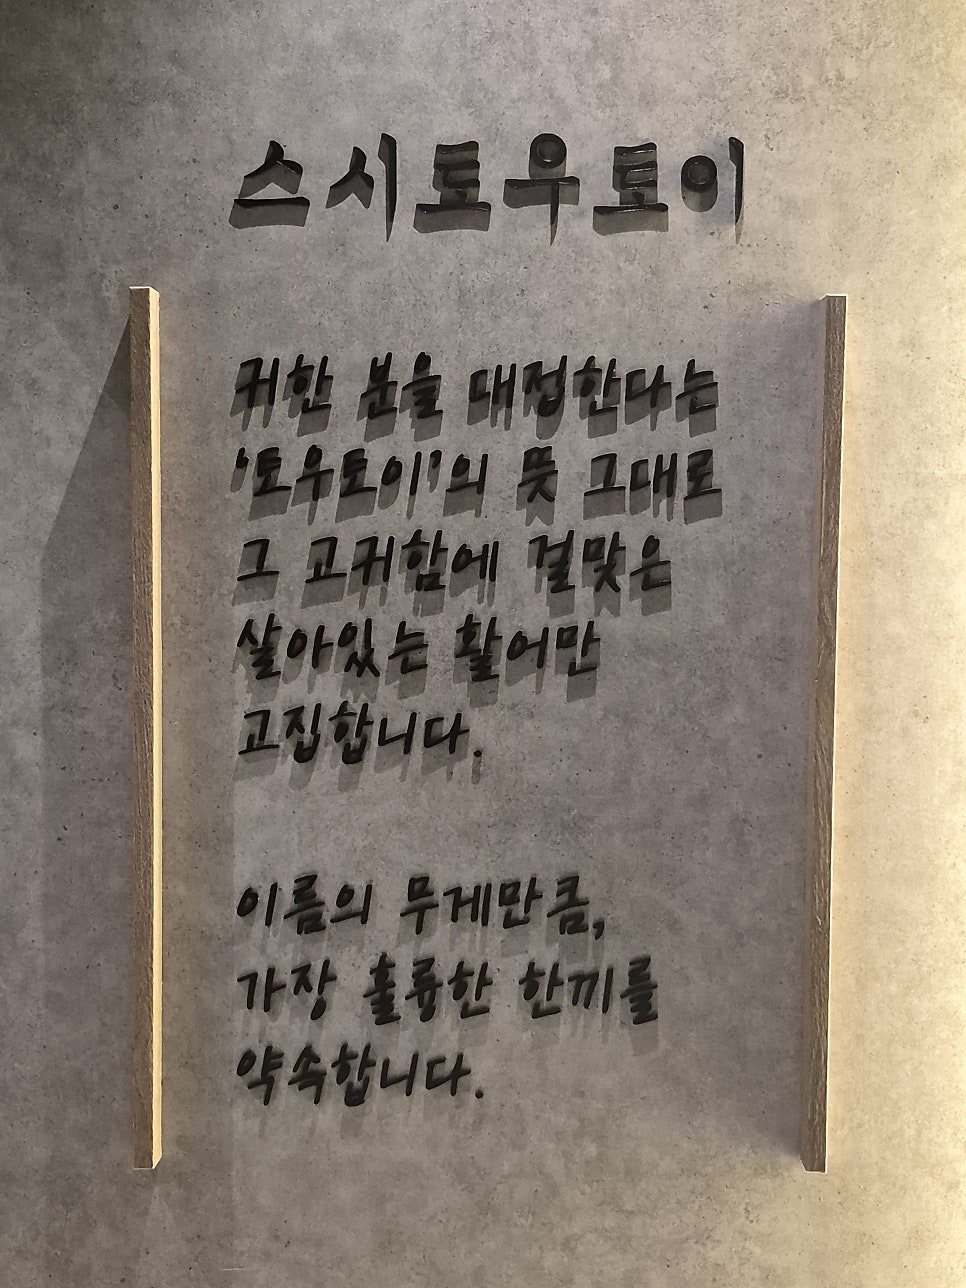 스시토우토이
귀한 분을 대접한다는
'토우토이'의 뜻 그대로
그 고귀함에 걸맞은
살아있는 활어만
고집합니다.
이름의 무게만큼,
가장 훌륭한 한끼를
약속합니다.